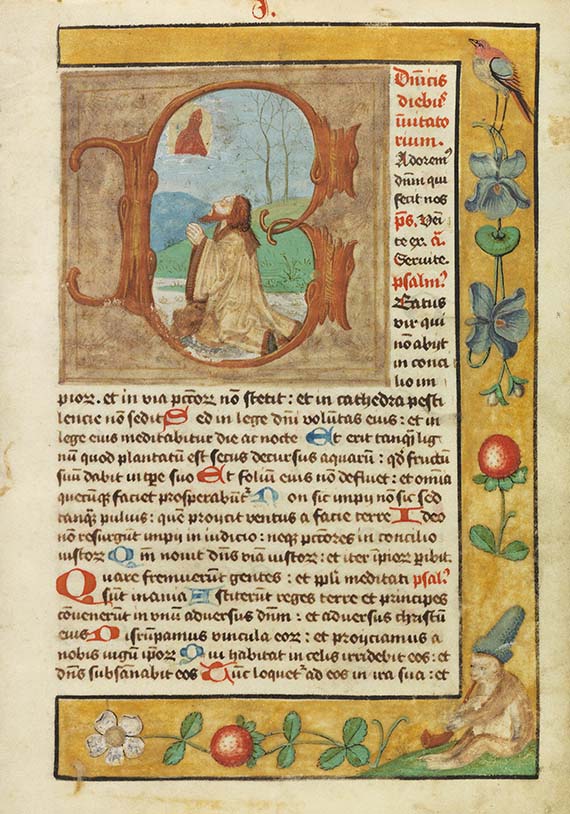 J.
Dn̄icis
diebus
īuitato
rium.
Adorem⁹
dn̄m qui
fecit nos
p̄s. Veni
te ex. a.
Seruite.
psalm⁹
Beatus
vir qui
nō abijt
in conci
lio im
pior. et in via pctōr nō stetit: et in cathedra pesti
lencie nō sedit Sed in lege dn̄i volūtas eius: et in
lege eius meditabitur die ac nocte Et erit tanq̄ lig
nū quod plantatū est secus decursus aquarū: qd̄ fructū
suū dabit in tp̄e suo Et foliū eius nō defluet: et omīa
quecūq̄ faciet prosperabūt᷑ Non sic impij nō sic sed
tanq̄ puluis: quē proijcit ventus a facie terre Ideo
nō resurgūt impij in iudicio: neq̄ pctōres in concilio
iustor Qm̄ nouit dn̄s viam iustor: et iter īpior ꝑibit.
Quare fremuerūt gentes: et ppl̄i meditati psal⁹
sūt inania Astiterūt reges terre et principes
cōuenerūt in vnū aduersus dn̄m: et aduersus christū
eius Disrūpamus vincula eor: et proijciamus a
nobis iugū ip̄or Qui habitat in celis irridebit eos: et
dn̄s subsānabit eos Tūc loquet᷑ ad eos in ira sua: et